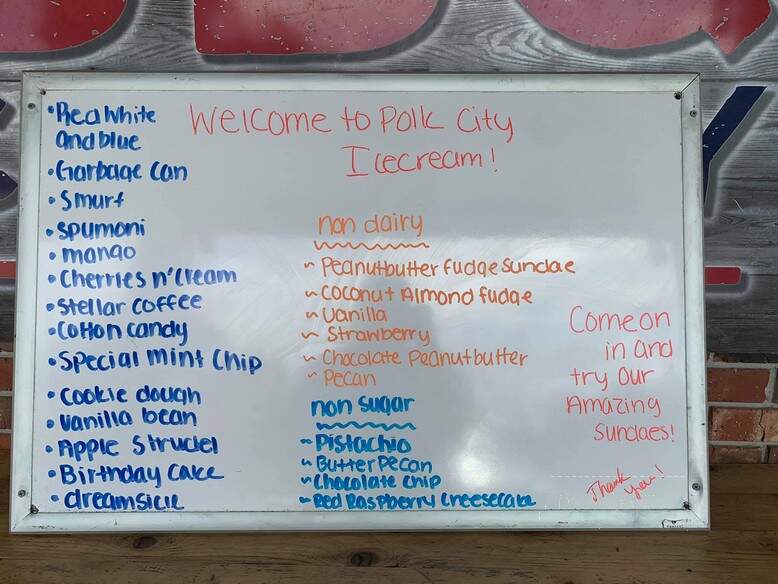 Welcome to Polk City
Icecream!
• Red White
and blue
• Garbage Can
• Smurf
• Spumoni
• mango
• Cherries n' Cream
• Stellar Coffee
• Cotton candy
• Special mint Chip
• Cookie dough
• Vanilla bean
• Apple Strudel
• Birthday Cake
• dreamsicle
non dairy
~ Peanutbutter fudge Sundae
~ Coconut Almond fudge
~ Vanilla
~ Strawberry
~ Chocolate Peanutbutter
~ Pecan
non sugar
~ Pistachio
~ Butter Pecan
~ Chocolate Chip
~ Red Raspberry Cheesecake
Come on
in and
try Our
Amazing
Sundaes!
Thank
you!